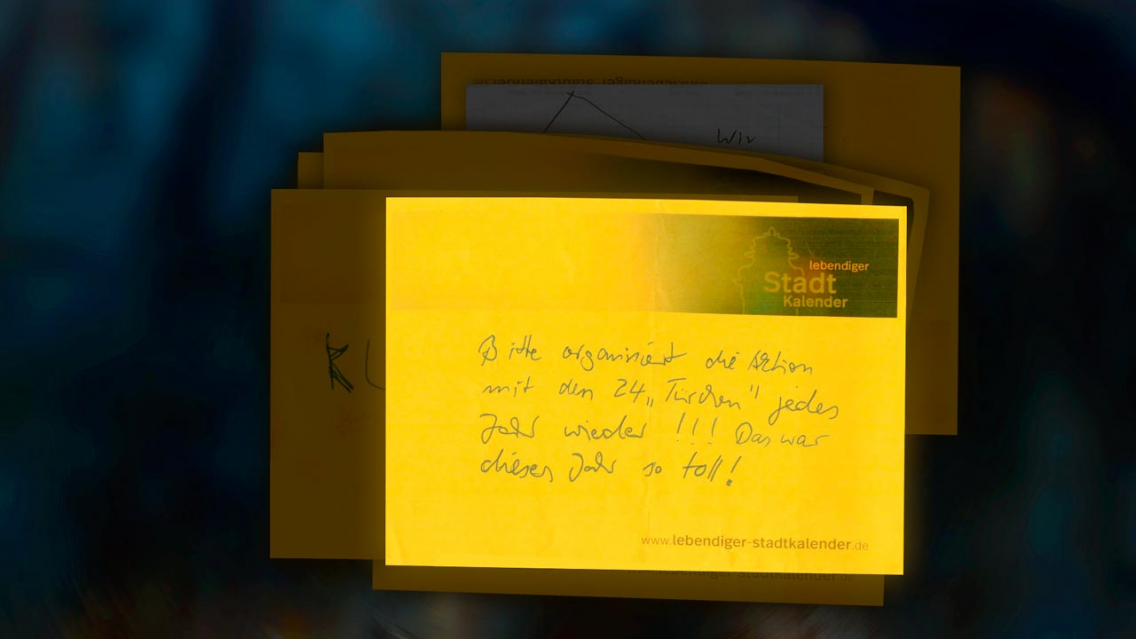 Wir
lebendiger
Stadt
Kalender
Bitte organisiert die Aktion
mit den 24 „Türchen" jedes
Jahr wieder !!! Das war
dieses Jahr so toll!
www.lebendiger-stadtkalender.de